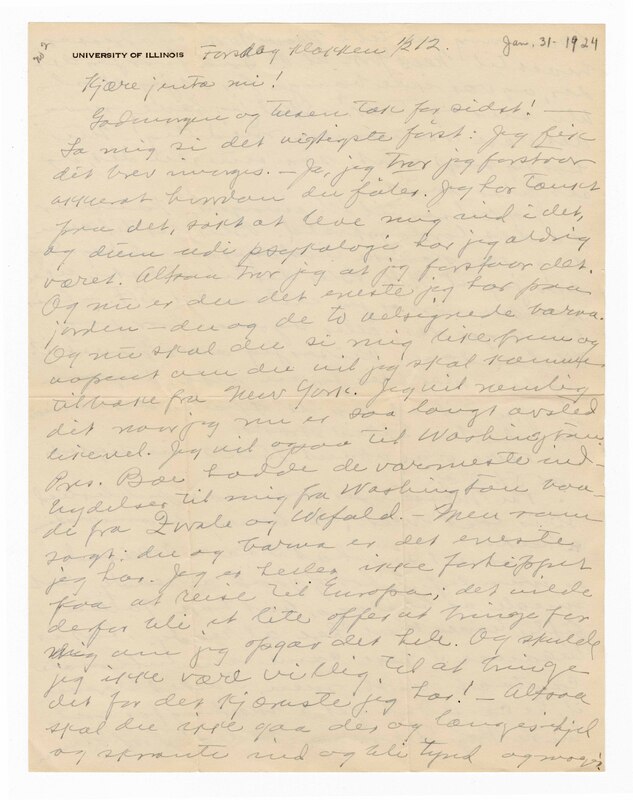 UNIVERSITY OF ILLINOIS Torsdag klokken 1/2 12. Jan. 31 - 1924
Kjære jenta mi!
Godmorgen og tusen tak for sidst! —
La mig si det vigtigste først: Jeg fik
dit brev imorges. — Ja, jeg tror jeg forstaar
akkurat hvordan du føler. Jeg har tænkt
paa det, søkt at leve mig ind i det,
og dum udi psykologi har jeg aldrig
været. Altsaa tror jeg at jeg forstaar det.
Og nu er du det eneste jeg har paa
jorden — du og de to velsignede barna.
Og nu skal du si mig like frem og
aapent om du vil jeg skal komme
tilbake fra New York. Jeg vil nemlig
dit naar jeg nu er saa langt avsted
likevel. Jeg vil ogsaa til Washington.
Pres. Boe hadde de varmeste ind-
bydelser til mig fra Washington baa-
de fra Kvale og Wefald. — Men som
sagt: du og barna er det eneste
jeg har. Jeg er heller ikke forhippet
paa at reise til Europa; det vilde
derfor bli et lite offer at bringe for
mig om jeg opgav det hele. Og skulde
jeg ikke være villig til at bringe
det for det kjæreste jeg har! — Altsaa
skal du ikke gaa der og længes ihjel
og skrante ind og bli tynd og mager